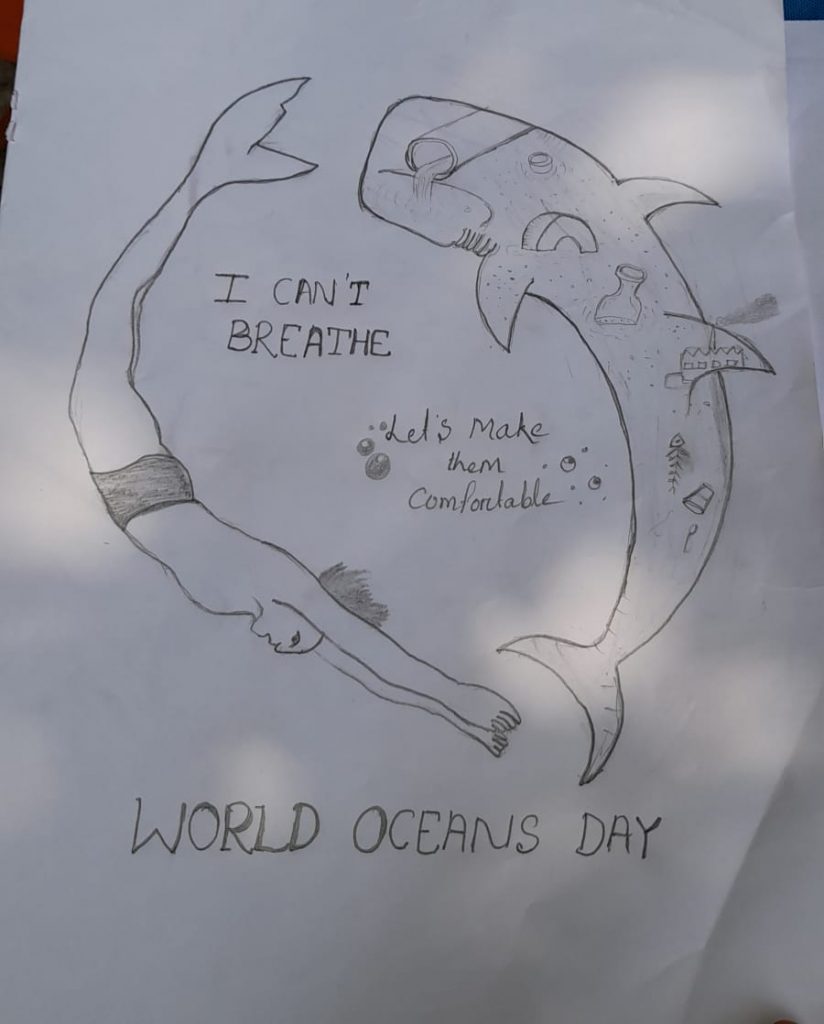 I CAN'T
BREATHE
Let's Make
them
Comfortable
WORLD OCEANS DAY